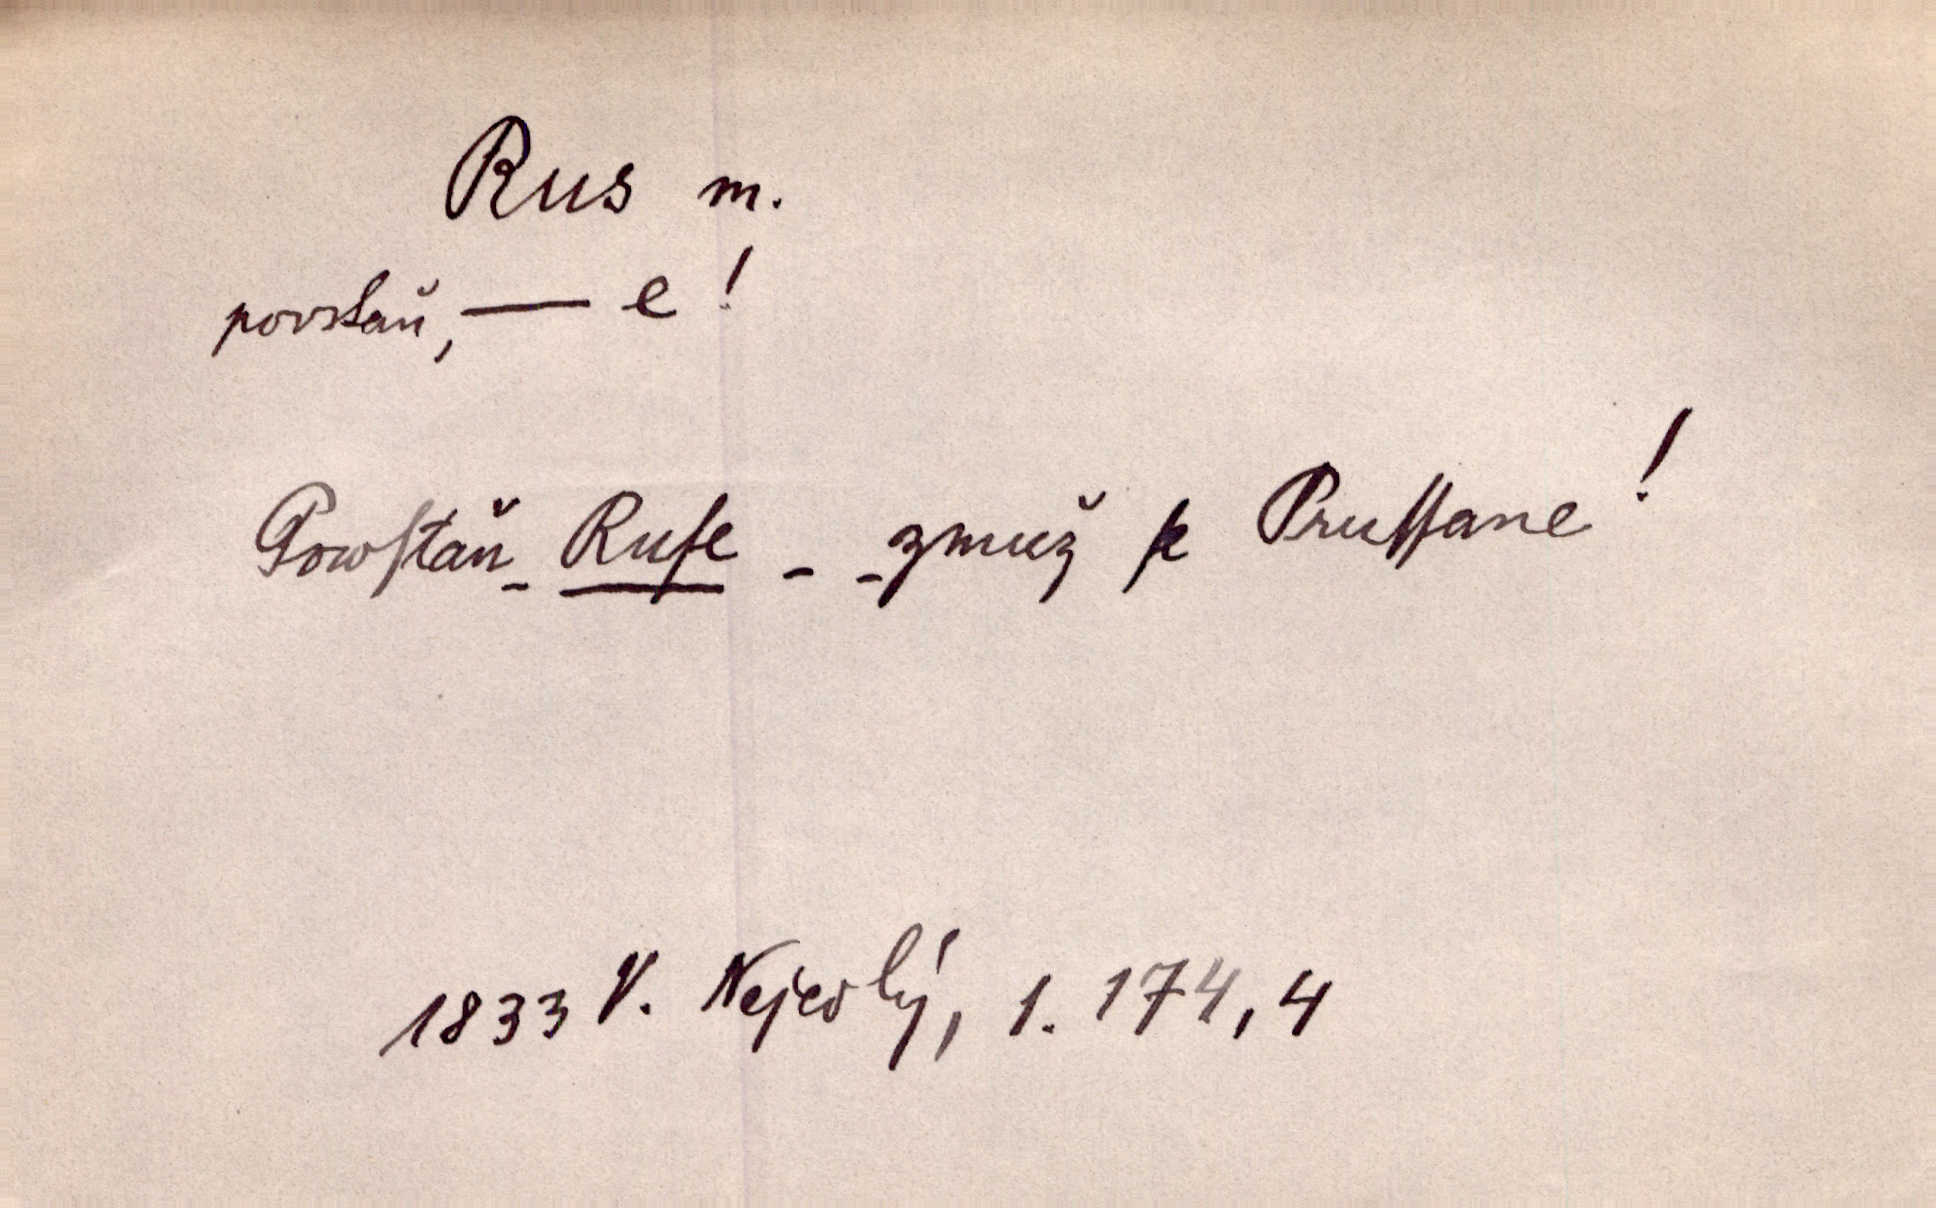 Rus m.
povstaň, — e!
Powſtaň - Ruſe - - zmuž ſe Pruſſane!
1833 V. Nejedlý, 1. 174, 4